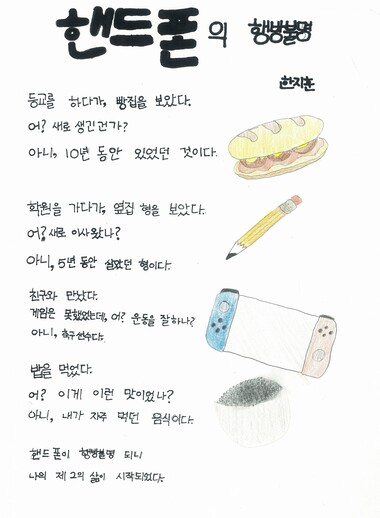 핸드폰의 행방불명
한지훈
등교를 하다가, 빵집을 보았다.
어? 새로 생긴건가?
아니, 10년 동안 있었던 것이다.
학원을 가다가, 옆집 형을 보았다.
어? 새로 이사왔나?
아니, 5년 동안 살았던 형이다.
친구와 만났다.
게임은 못했었는데, 어? 운동을 잘하나?
아니, 축구선수다.
밥을 먹었다.
어? 이게 이런 맛이었나?
아니, 내가 자주 먹던 음식이다.
핸드폰이 행방불명 되니
나의 제 2의 삶이 시작되었다.